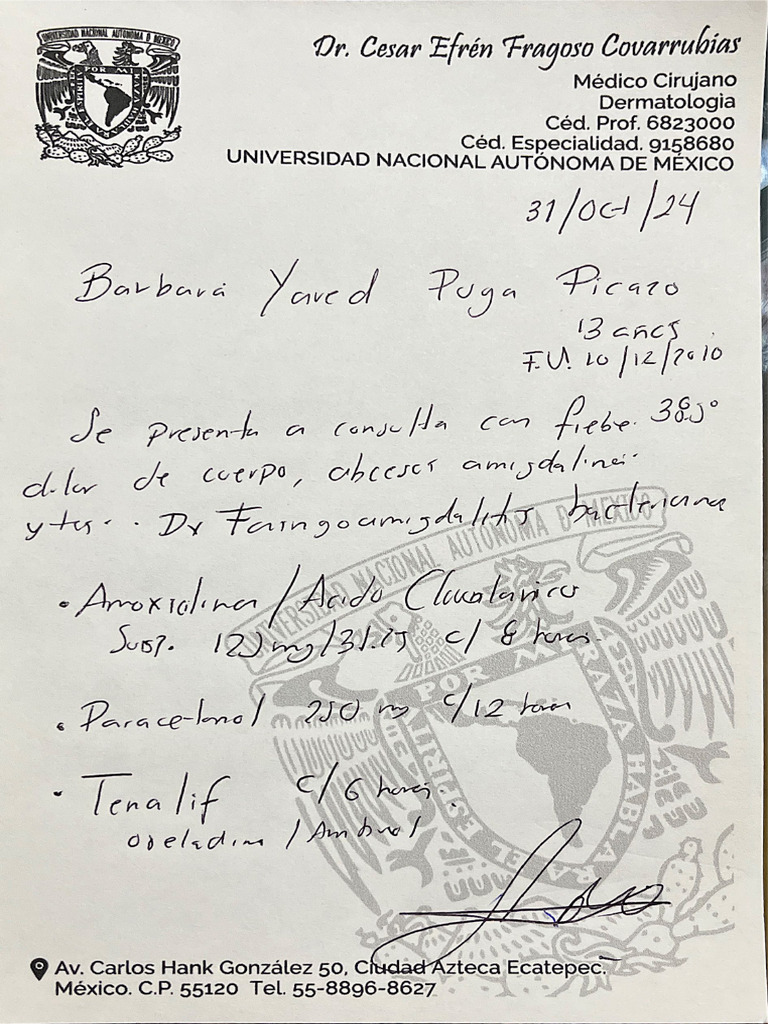 UNIVERSIDAD NACIONAL AUTONOMA D MEXICO
POR MI RAZA HABLARA EL ESPIRITU
Dr. Cesar Efrén Fragoso Covarrubias
Médico Cirujano
Dermatologia
Céd. Prof. 6823000
Céd. Especialidad. 9158680
UNIVERSIDAD NACIONAL AUTÓNOMA DE MÉXICO
31/Oct/24
Barbara Yared Puga Picazo
13 años
10/12/2010
Se presenta a consulta con fiebe
dolor de cuerpo, abcesos amigdalinos
y tos. Dx Faringoamigdalitis bacteriana
• Amoxicilina / Acido Clavulanico
Susp. 125 mg/31.25 c/ 8 horas
• Paracetamol 250 mg c/12 horas
• Tenalif c/6 horas
oxeladina / Ambroxol
UNIVERSIDAD NACIONAL AUTONOMA D MEXICO
POR MI RAZA HABLARA EL ESPIRITU
Av. Carlos Hank González 50, Ciudad Azteca Ecatepec.
México. C.P. 55120 Tel. 55-8896-8627